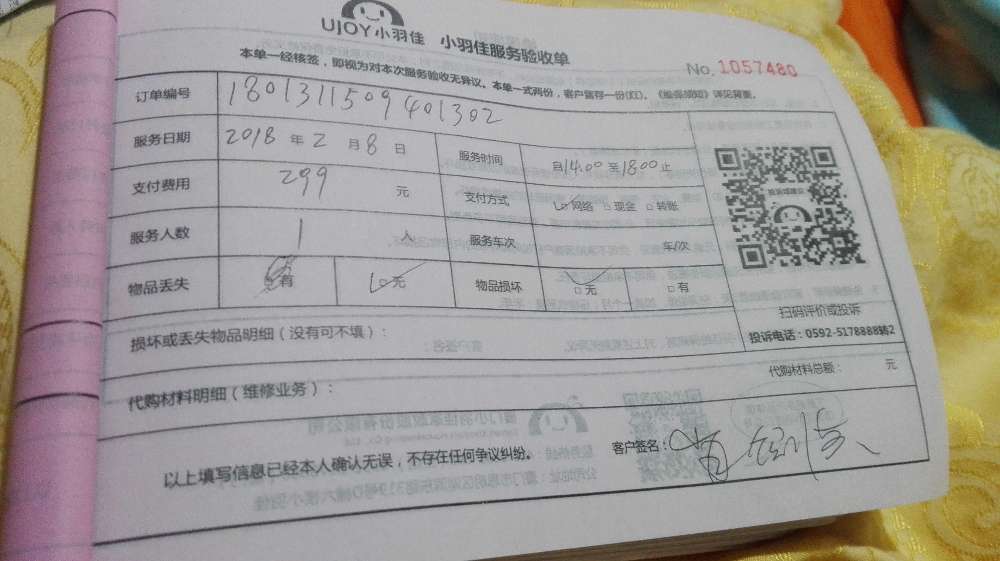 UJOY小羽佳 小羽佳服务验收单
No. 1057480
本单一经核签，即视为对本次服务验收无异议。本单一式两份，客户留存一份(红)。《维保须知》详见背页。
订单编号 1801311509401302
服务日期 2018 年 2 月 8 日 服务时间 自14:00 至18:00 止
支付费用 299 元 支付方式 □网络 □现金 □转账
服务人数 1 人 服务车次 车/次
物品丢失 □有 □无 物品损坏 □无 □有
扫码评价或投诉
投诉电话：0592-5178888转2
损坏或丢失物品明细（没有可不填）：
代购材料明细（维修业务）： 代购材料总额： 元
以上填写信息已经本人确认无误，不存在任何争议纠纷。 客户签名：